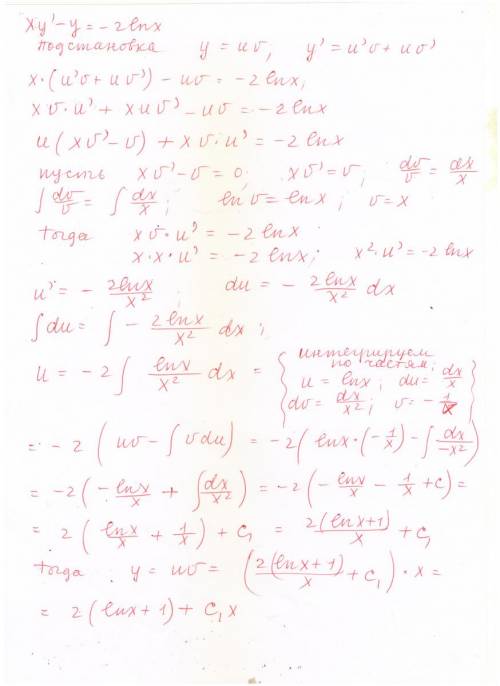 xy' - y = -2 lnx
подстановка y = uv, y' = u'v + uv'
x·(u'v + uv') - uv = -2 lnx;
xv·u' + xuv' - uv = -2 lnx
u(xv' - v) + xv·u' = -2 lnx
пусть xv' - v = 0; xv' = v; dv/v = dx/x
∫ dv/v = ∫ dx/x; ln v = lnx; v = x
тогда xv·u' = -2 lnx
x·x·u' = -2 lnx; x²·u' = -2 lnx
u' = - 2lnx/x²; du = - 2lnx/x² dx
∫ du = ∫ - 2lnx/x² dx;
u = -2 ∫ lnx/x² dx = { интегрируем
по частям:
u = lnx; du = dx/x
dv = dx/x²; v = -1/x }
= -2 (uv - ∫ v du) = -2( lnx·(-1/x) - ∫ dx/-x²
= -2(- lnx/x + ∫ dx/x²) = -2(- lnx/x - 1/x + c) =
= 2( lnx/x + 1/x) + c₁ = 2(lnx+1)/x + c₁
тогда y = uv = ( 2(lnx+1)/x + c₁ )·x =
= 2(lnx+1) + c₁x